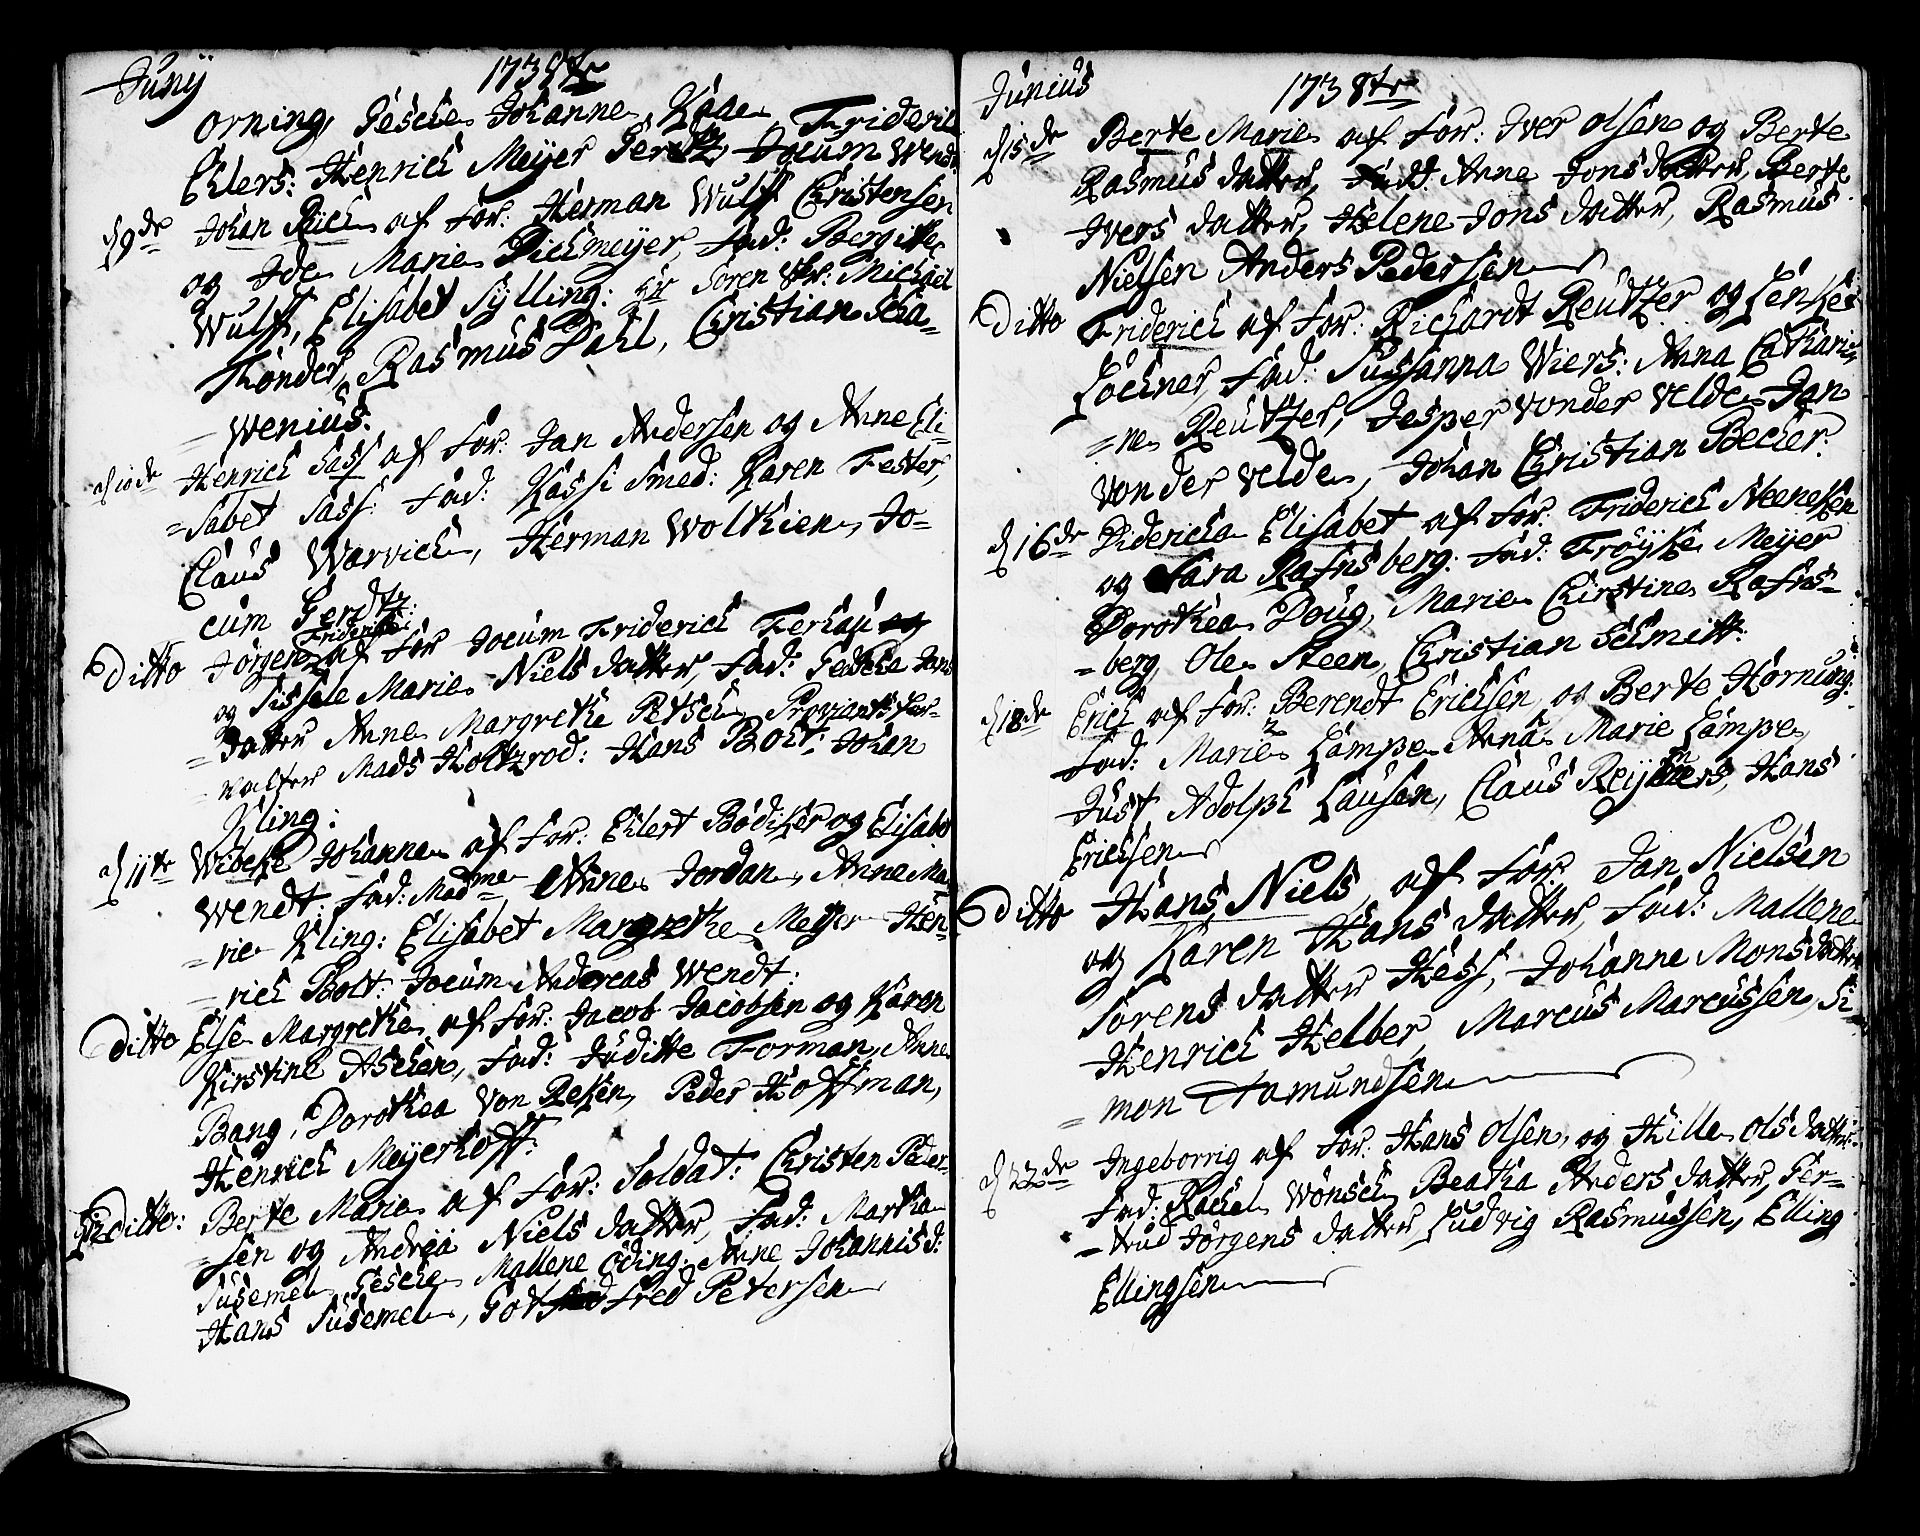 Junÿ 1738tr
orning, Gesche Johanne Kaae, Friderich
Ehlers: Henrich Meÿer Gerdtz Jocum Wendt
d 9de Johan Rich af For: Herman Wulff Christensen
og Ide Marie Dickmeÿer, Fad: Bergitte
Wulff, Elisabet Sÿlling: Hr Soren Hr: Michael
Hønder, Rasmus Dahl, Christian Scha-
-wenius.
d 10de Henrich Sass af For: Jan Andersen og Anne Eli-
-sabet Sass: Fad: Kassi Smed: Karen Fester,
Claus Warvich, Herman Wolthien, Jo-
cum Gerdtz:
Ditto Jørgen Friderich af For Jocum Friderich Ferhau og
og Sissele Marie Niels datter, Fad: Gedske Jans
-datter Anne Margrethe Petsch, Proviantsfor-
-valter Mads Holtzrod: Hans Bolt: Johan
Kling:
d 11te Wibeke Johanne af For: Ehlert Bødiker og Elisabet
Wendt: Fad: Madme Anne Jordan, Anne Ma-
-rie Kling: Elisabet Margrethe Meÿer Hen-
-rich Bolt: Jocum Andreas Wendt:
Ditto Else Margrethe af For: Jacob Jacobsen og Karen
Kirstine Aschen, Fad: Juditte Forman, Anne
Bang, Dorothea Von Reken, Peder Hoffman,
Henrich Meÿerhoff:
Ditto: Berte Marie af For: Soldat: Christen Peder-
-sen og Andrea Niels datter, Fad: Martha
Susemel, Gesche Mallene Øding: Anne Johannisd:
Hans Susemel, Gotfred Petersen
Junius 1738tr
d 15de Berte Marie af For: Iver Olsen og Berte
Rasmus datter, Fad: Anne Jons datter, Berte
Ivers datter, Helene Jons datter, Rasmus
Nielsen Anders Pedersen
Ditto Friderich af For: Richardt Reutzer og Lenke
Lochner, Fad: Sussanna Wiers: Anna Cathari-
-ne Reutzer, Jesper Vonder Velde Jan
Vonder Velde, Johan Christian Becker:
d 16de Didericha Elisabet af For: Friderich Neenessen
og Sara Rafns berg: Fad: Frøÿke Meÿer
Dorothea Doug, Marie Chirstine Rafns-
-berg, Ole Steen, Christian Schmitt:
d 18de Erich af For: Berendt Erichsen og Berte Hornung:
Fad: Marie Lampe Anna Marie Lampe,
Just Adolph Lausen, Claus Reÿmers, Hans
Erichsen
Ditto Hans Niels af For: Jan Nielsen
og Karen Hans datter, Fad: Mallene
Sorens datter Hess, Johanne Mons datter
Henrich Helber, Marcus Marcussen, Si-
-mon Aamundsen
d 22de Ingeborrig af For: Hans Olsen, og Hille Ols datter
Fad: Rachel Wønsch, Beatha Anders datter, Ger-
-trud Jørgens datter Ludvig Rasmussen, Elling
Ellingsen